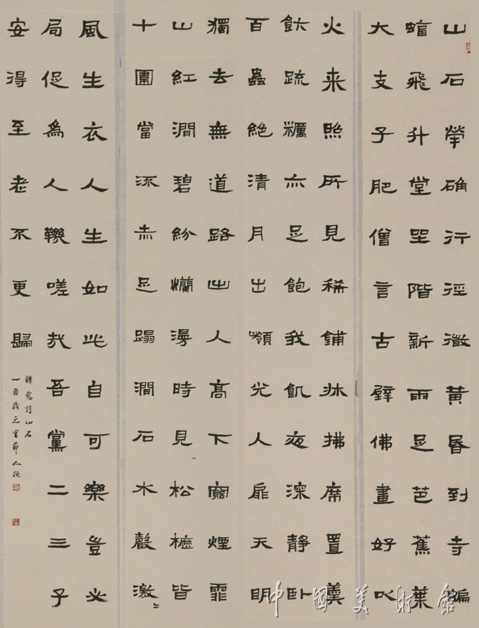 山石犖确行徑微黃昏到寺蝙
蝠飛升堂坐階新雨足芭蕉葉
大支子肥僧言古壁佛畫好以
火來照所見稀鋪牀拂席置羹
飯疏糲亦足飽我飢夜深靜卧
百蟲絕清月出嶺光人扉天明
獨去無道路出入高下窮煙霏
山紅澗碧紛爛漫時見松櫪皆
十圍當流赤足蹋澗石水聲激〻
風生衣人生如此自可樂豈必
局促為人鞿嗟哉吾黨二三子
安得至老不更歸
韓愈詩山石
元宵節
中國美術館